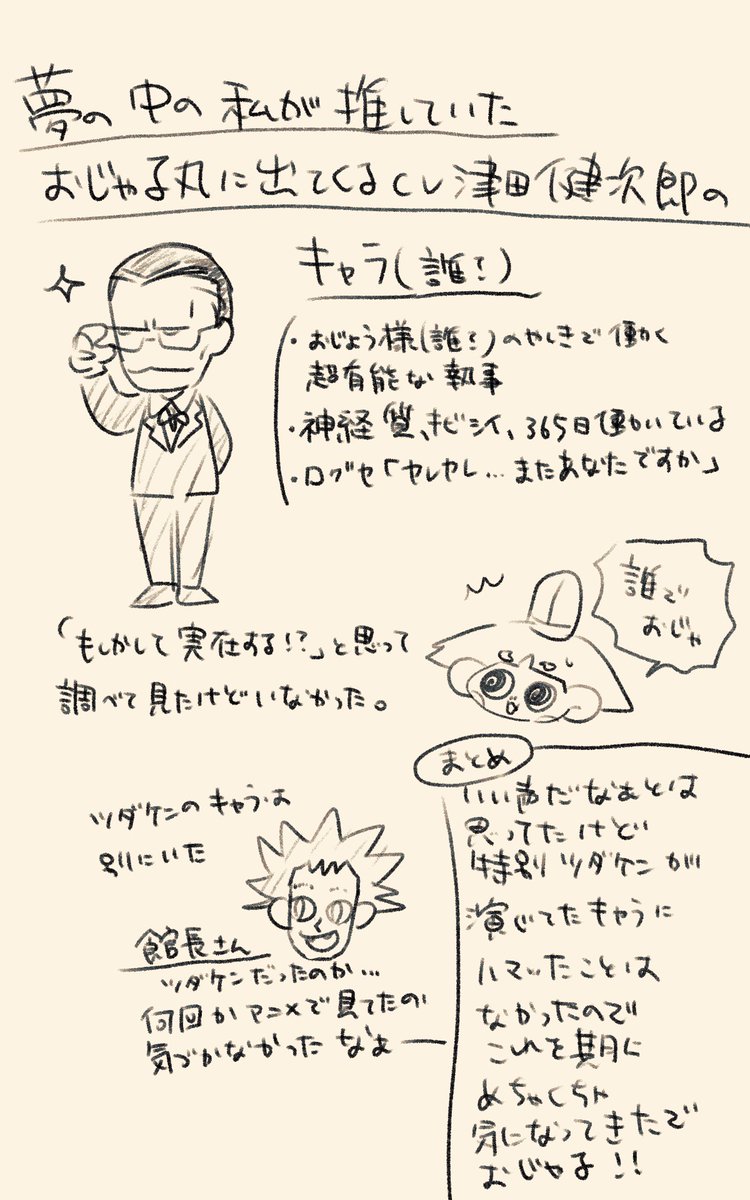 夢の中の私が推していた
おじゃる丸に出てくるCV津田健次郎の
キャラ(誰?)
・おじょう様(誰?)のやしきで働く
超有能な執事
・神経質、キビシイ、365日働いている
・口グセ「ヤレヤレ…またあなたですか」
「もしかして実在する!?」と思って
調べて見たけどいなかった。
誰で
おじゃ
ツダケンのキャラは
別にいた
館長さん
ツダケンだったのか…
何回かアニメで見てたの
気づかなかったなぁー
まとめ
いい声だなぁとは
思ってたけど
特別ツダケンが
演じてたキャラに
ハマッたことは
なかったので
これを期に
めちゃくちゃ
気になってきたで
おじゃる!!